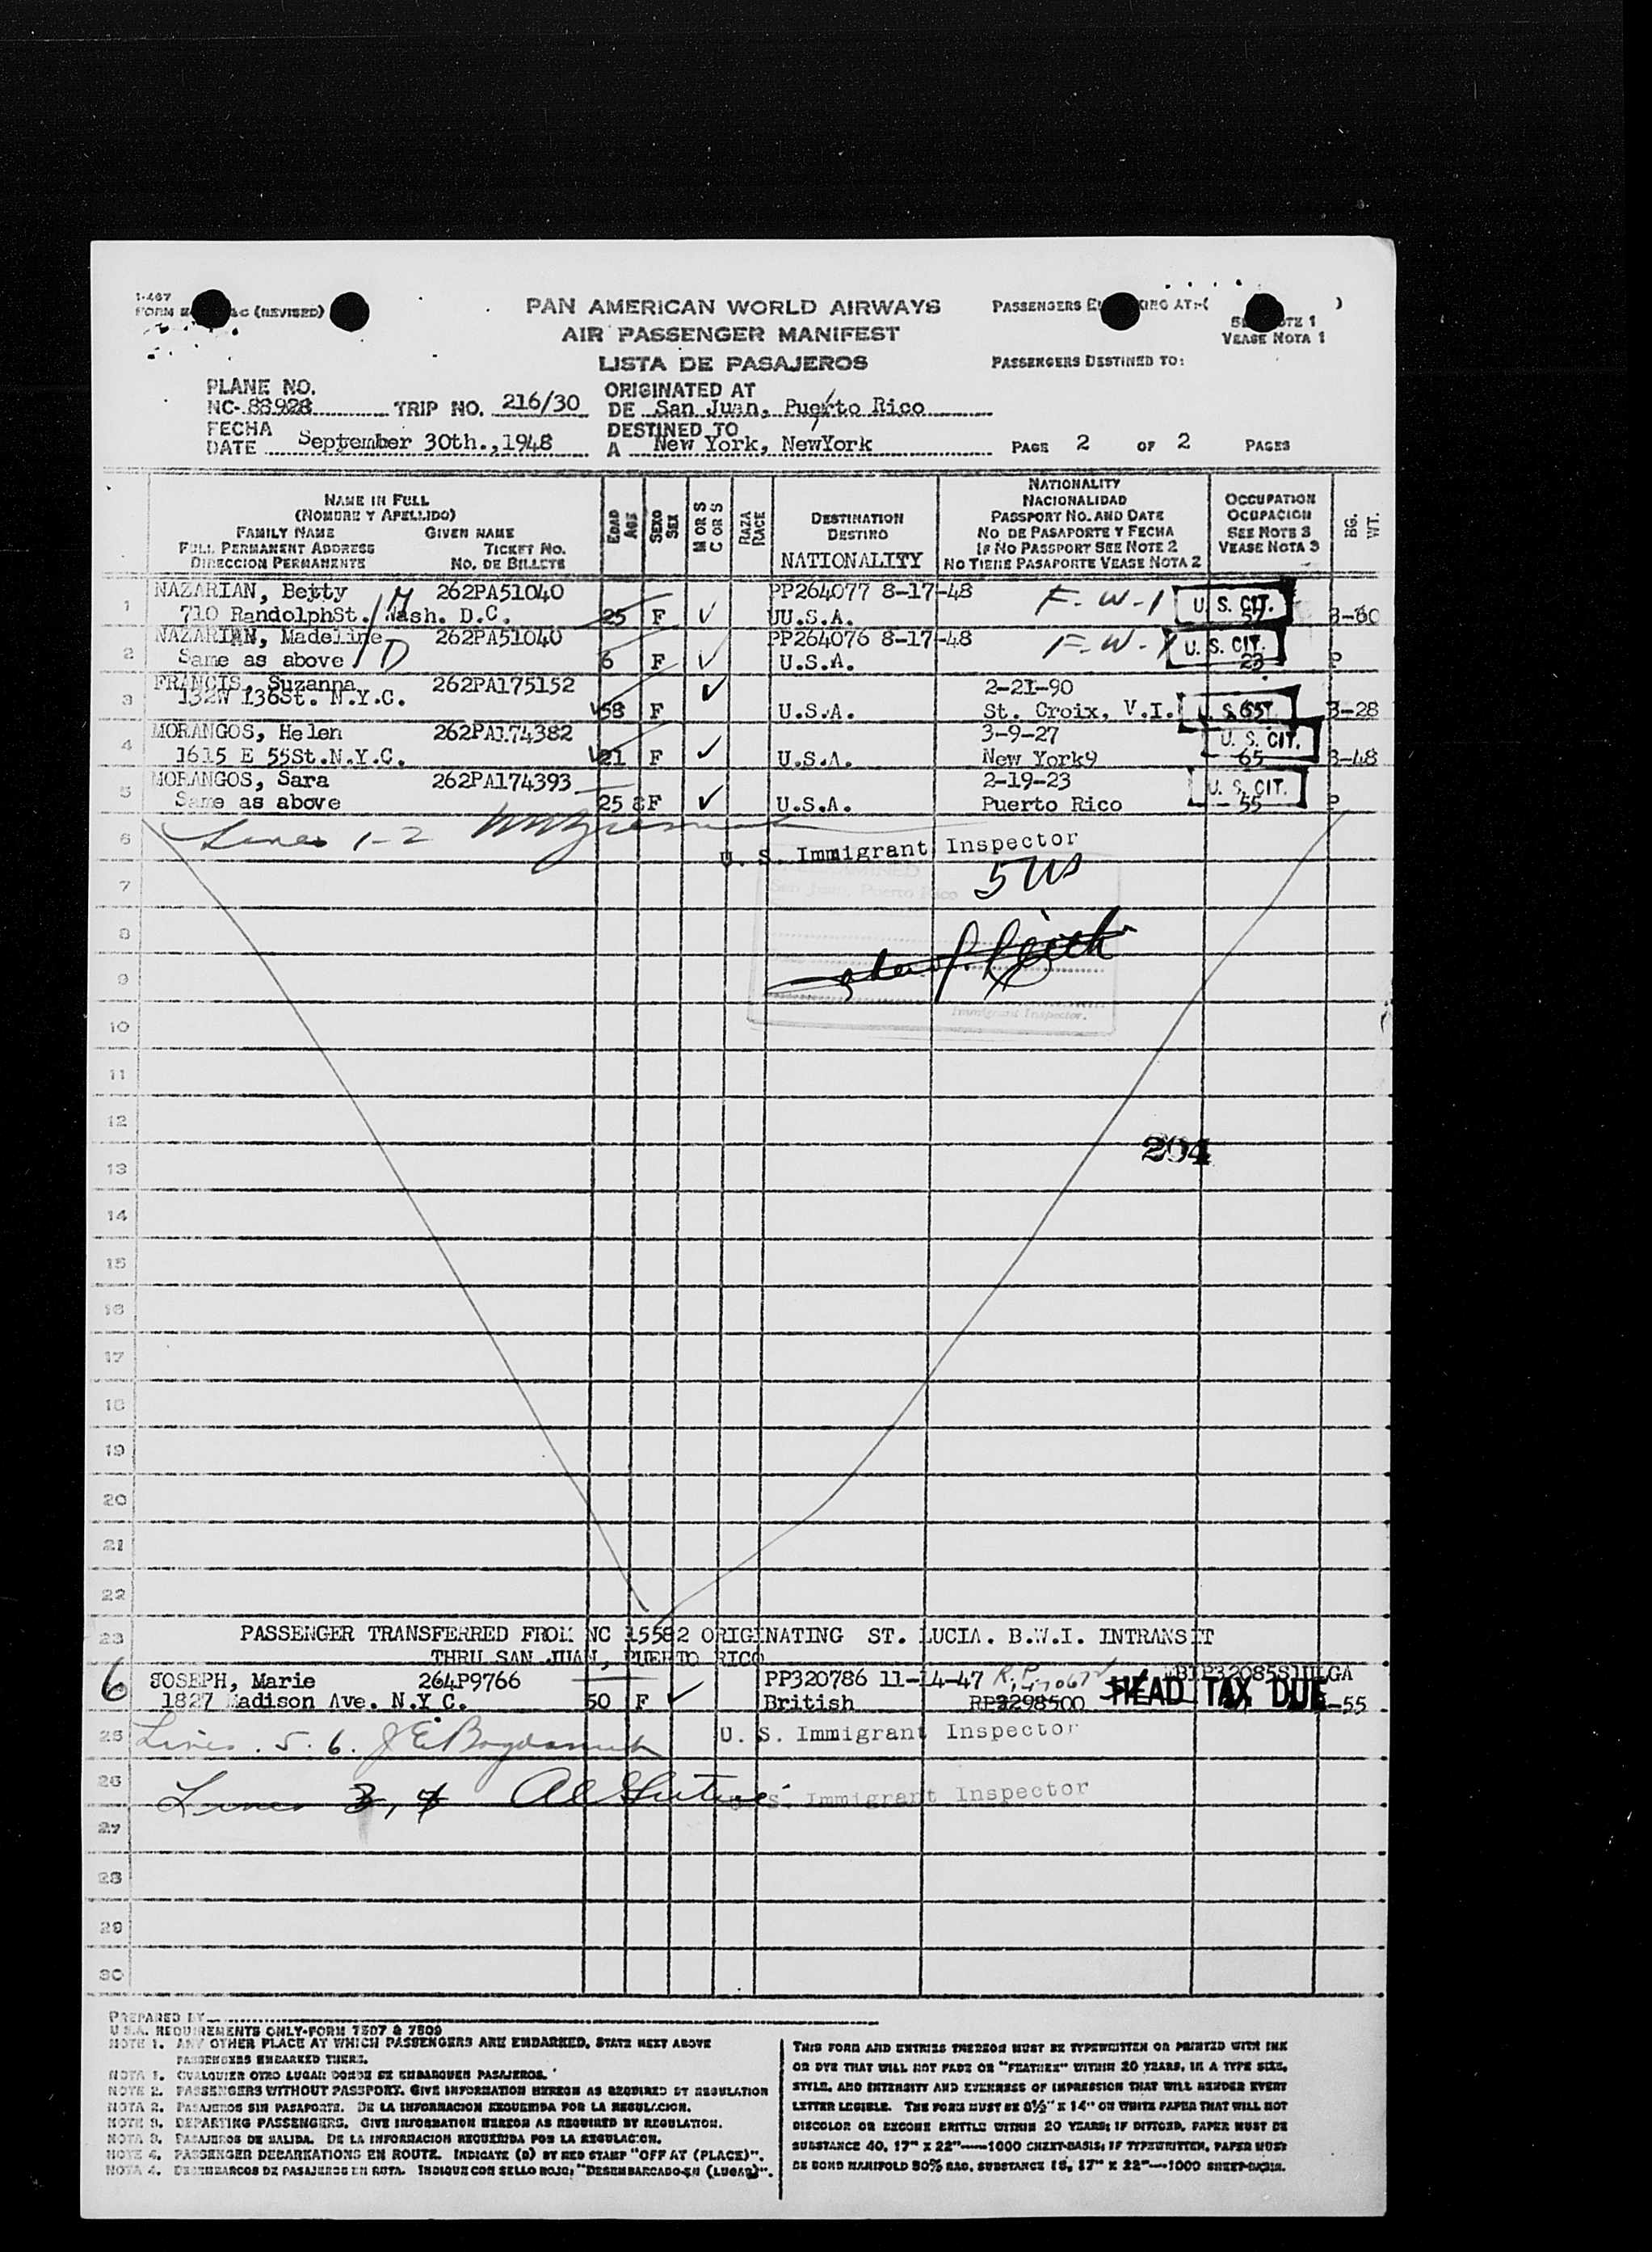 1-467
FORM (REVISED)
PAN AMERICAN WORLD AIRWAYS
AIR PASSENGER MANIFEST
LISTA DE PASAJEROS
PASSENGERS AT:-( )
NOTE 1
VEASE NOTA 1
PASSENGERS DESTINED TO:
PLANE NO.
NC-88928 TRIP NO. 216/30
ORIGINATED AT
DE San Juan, Puerto Rico
FECHA
DATE September 30th.,1948
DESTINED TO
A New York, NewYork
PAGE 2 OF 2 PAGES
NAME IN FULL
(NOMBRE Y APELLIDO)
FAMILY NAME GIVEN NAME
FULL PERMANENT ADDRESS TICKET NO.
DIRECCION PERMANENTE NO. DE BILLETE
EDAD
AGE
SEXO
SEX
M OR S
C OR S
RAZA
RACE
DESTINATION
DESTINO
NATIONALITY
NATIONALITY
NACIONALIDAD
PASSPORT NO. AND DATE
NO DE PASAPORTE Y FECHA
IF NO PASSPORT SEE NOTE 2
NO TIENE PASAPORTE VEASE NOTA 2
OCCUPATION
OCUPACION
SEE NOTE 3
VEASE NOTA 3
BG.
WT.
1 NAZARIAN, Betty M 262PA51040 PP264077 8-17-48 F-W-1 U.S. CIT.
710 RandolphSt. Wash. D.C. 25 F UU.S.A.
2 NAZARIAN, Madeline D 262PA51040 PP264076 8-17-48 F-W-1 U.S. CIT.
Same as above 6 F U.S.A. 23 P
3 FRANCIS, Suzanna 262PA175152 2-21-90
132W 136St. N.Y.C. 58 F U.S.A. St. Croix, V.I. 65 3-28
4 MORANGOS, Helen 262PA174382 3-9-27 U.S. CIT.
1615 E 55St.N.Y.C. 21 F U.S.A. New York9 65 3-48
5 MORANGOS, Sara 262PA174393 2-19-23 U.S. CIT.
Same as above 25 F U.S.A. Puerto Rico 55 P
6 Lines 1-2
U. S. Immigrant Inspector
7 5 US
San Juan, Puerto Rico
8
9
Immigrant Inspector.
10
11
12
204
13
14
15
16
17
18
19
20
21
22
23 PASSENGER TRANSFERRED FROM NC 15582 ORIGINATING ST. LUCIA. B.W.I. INTRANSIT
THRU SAN JUAN, PUERTO RICO
6 JOSEPH, Marie 264P9766 PP320786 11-14-47 R.P.
1827 Madison Ave. N.Y.C. 50 F British RP3298500 HEAD TAX DUE -55
25 Lines. 5. 6. U. S. Immigrant Inspector
26 Lines 3, 4 U. S. Immigrant Inspector
27
28
29
30
PREPARED BY
U.S.A. REQUIREMENTS ONLY-FORM 7507 & 7509
NOTE 1. ANY OTHER PLACE AT WHICH PASSENGERS ARE EMBARKED, STATE NEXT ABOVE
PASSENGERS EMBARKED THERE.
NOTA 1. CUALQUIER OTRO LUGAR DONDE SE EMBARQUEN PASAJEROS.
NOTE 2. PASSENGERS WITHOUT PASSPORT. GIVE INFORMATION HEREON AS REQUIRED BY REGULATION
NOTA 2. PASAJEROS SIN PASAPORTE. DE LA INFORMACION REQUERIDA POR LA REGULACION.
NOTE 3. DEPARTING PASSENGERS. GIVE INFORMATION HEREON AS REQUIRED BY REGULATION.
NOTA 3. PASAJEROS DE SALIDA. DE LA INFORMACION REQUERIDA POR LA REGULACION.
NOTE 4. PASSENGER DEBARKATIONS EN ROUTE. INDICATE (D) BY RED STAMP "OFF AT (PLACE)".
NOTA 4. DESEMBARCOS DE PASAJEROS EN RUTA. INDIQUE CON SELLO ROJO, "DESEMBARCADO EN (LUGAR)".
THIS FORM AND ENTRIES THEREON MUST BE TYPEWRITTEN OR PRINTED WITH INK
OR DYE THAT WILL NOT FADE OR "FEATHER" WITHIN 20 YEARS, IN A TYPE SIZE,
STYLE, AND INTENSITY AND EVENNESS OF IMPRESSION THAT WILL RENDER EVERY
LETTER LEGIBLE. THE FORM MUST BE 8½" X 14" ON WHITE PAPER THAT WILL NOT
DISCOLOR OR BECOME BRITTLE WITHIN 20 YEARS; IF DITTOED, PAPER MUST BE
SUBSTANCE 40, 17" X 22"-----1000 SHEET-BASIS; IF TYPEWRITTEN, PAPER MUST
BE BOND MANIFOLD 50% RAG, SUBSTANCE 16, 17" X 22"---1000 SHEET-BASIS.